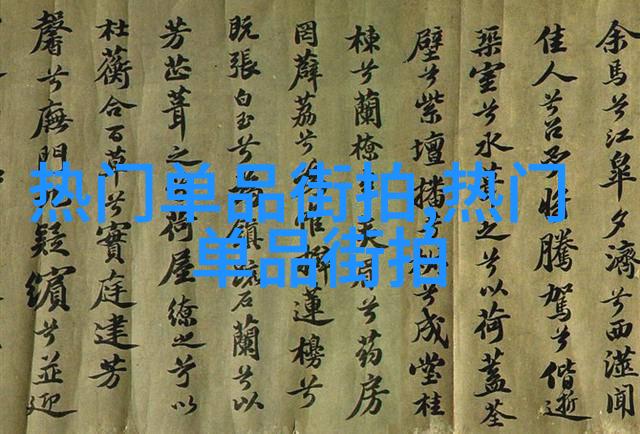 热门单品街拍,热门
单品街拍
余馬兮江皋夕濟兮西澨聞
佳人兮召予將騰駕兮偕逝
築室兮水 之兮以荷蓋荃
壁兮紫壇播 兮成堂桂
棟兮蘭橑 兮药房
罔薜荔兮 帷擗 櫋兮
既張白玉兮 鎮 石蘭兮以
芳芷葺之 荷屋繚之兮以
杜蘅合百草兮實庭建芳
馨兮廡門九疑繽兮並迎